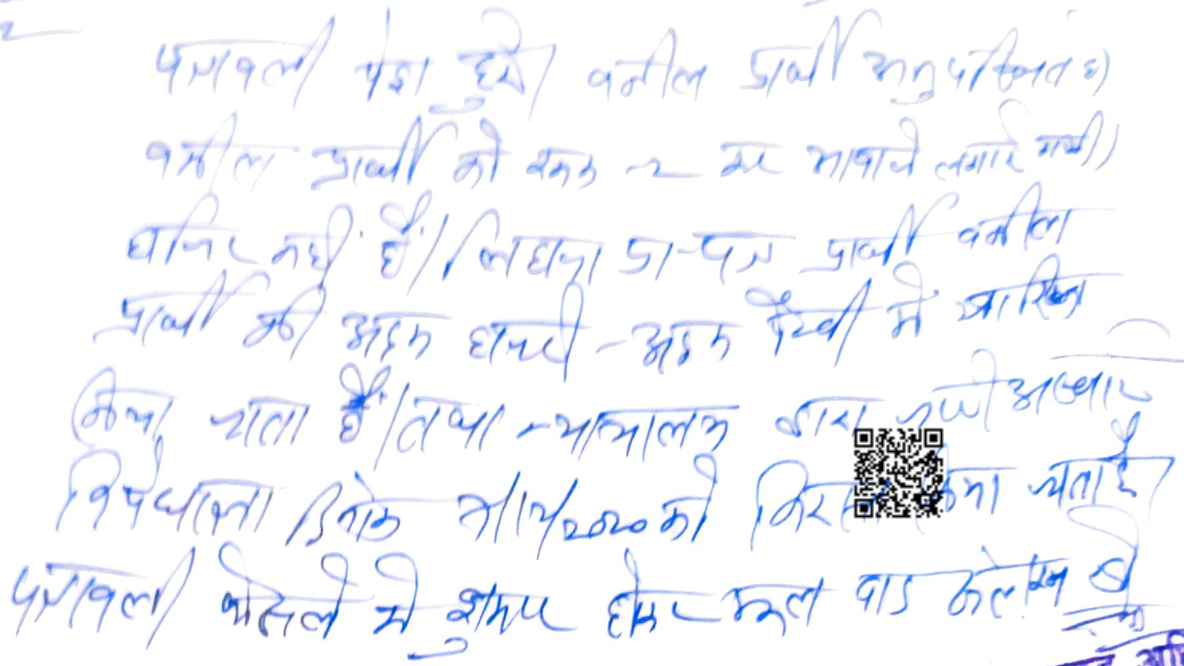 पत्रावली पेश हुयी वकील प्रार्थी अनुपस्थित है।
वकील प्रार्थी को रूक रूक कर आवाजे लगाई गयी।
हाजिर नहीं हैं। लिहाजा प्रा-पत्र प्रार्थी वकील
प्रार्थी की अदम हाजरी - अदम पैरवी में खारिज
किया जाता हैं। तथा न्यायालय द्वारा जारी अस्थाई
निषेधाज्ञा दिनांक को निरस्त किया जाता है।
पत्रावली फैसले में शुमार होकर मूल वाद के